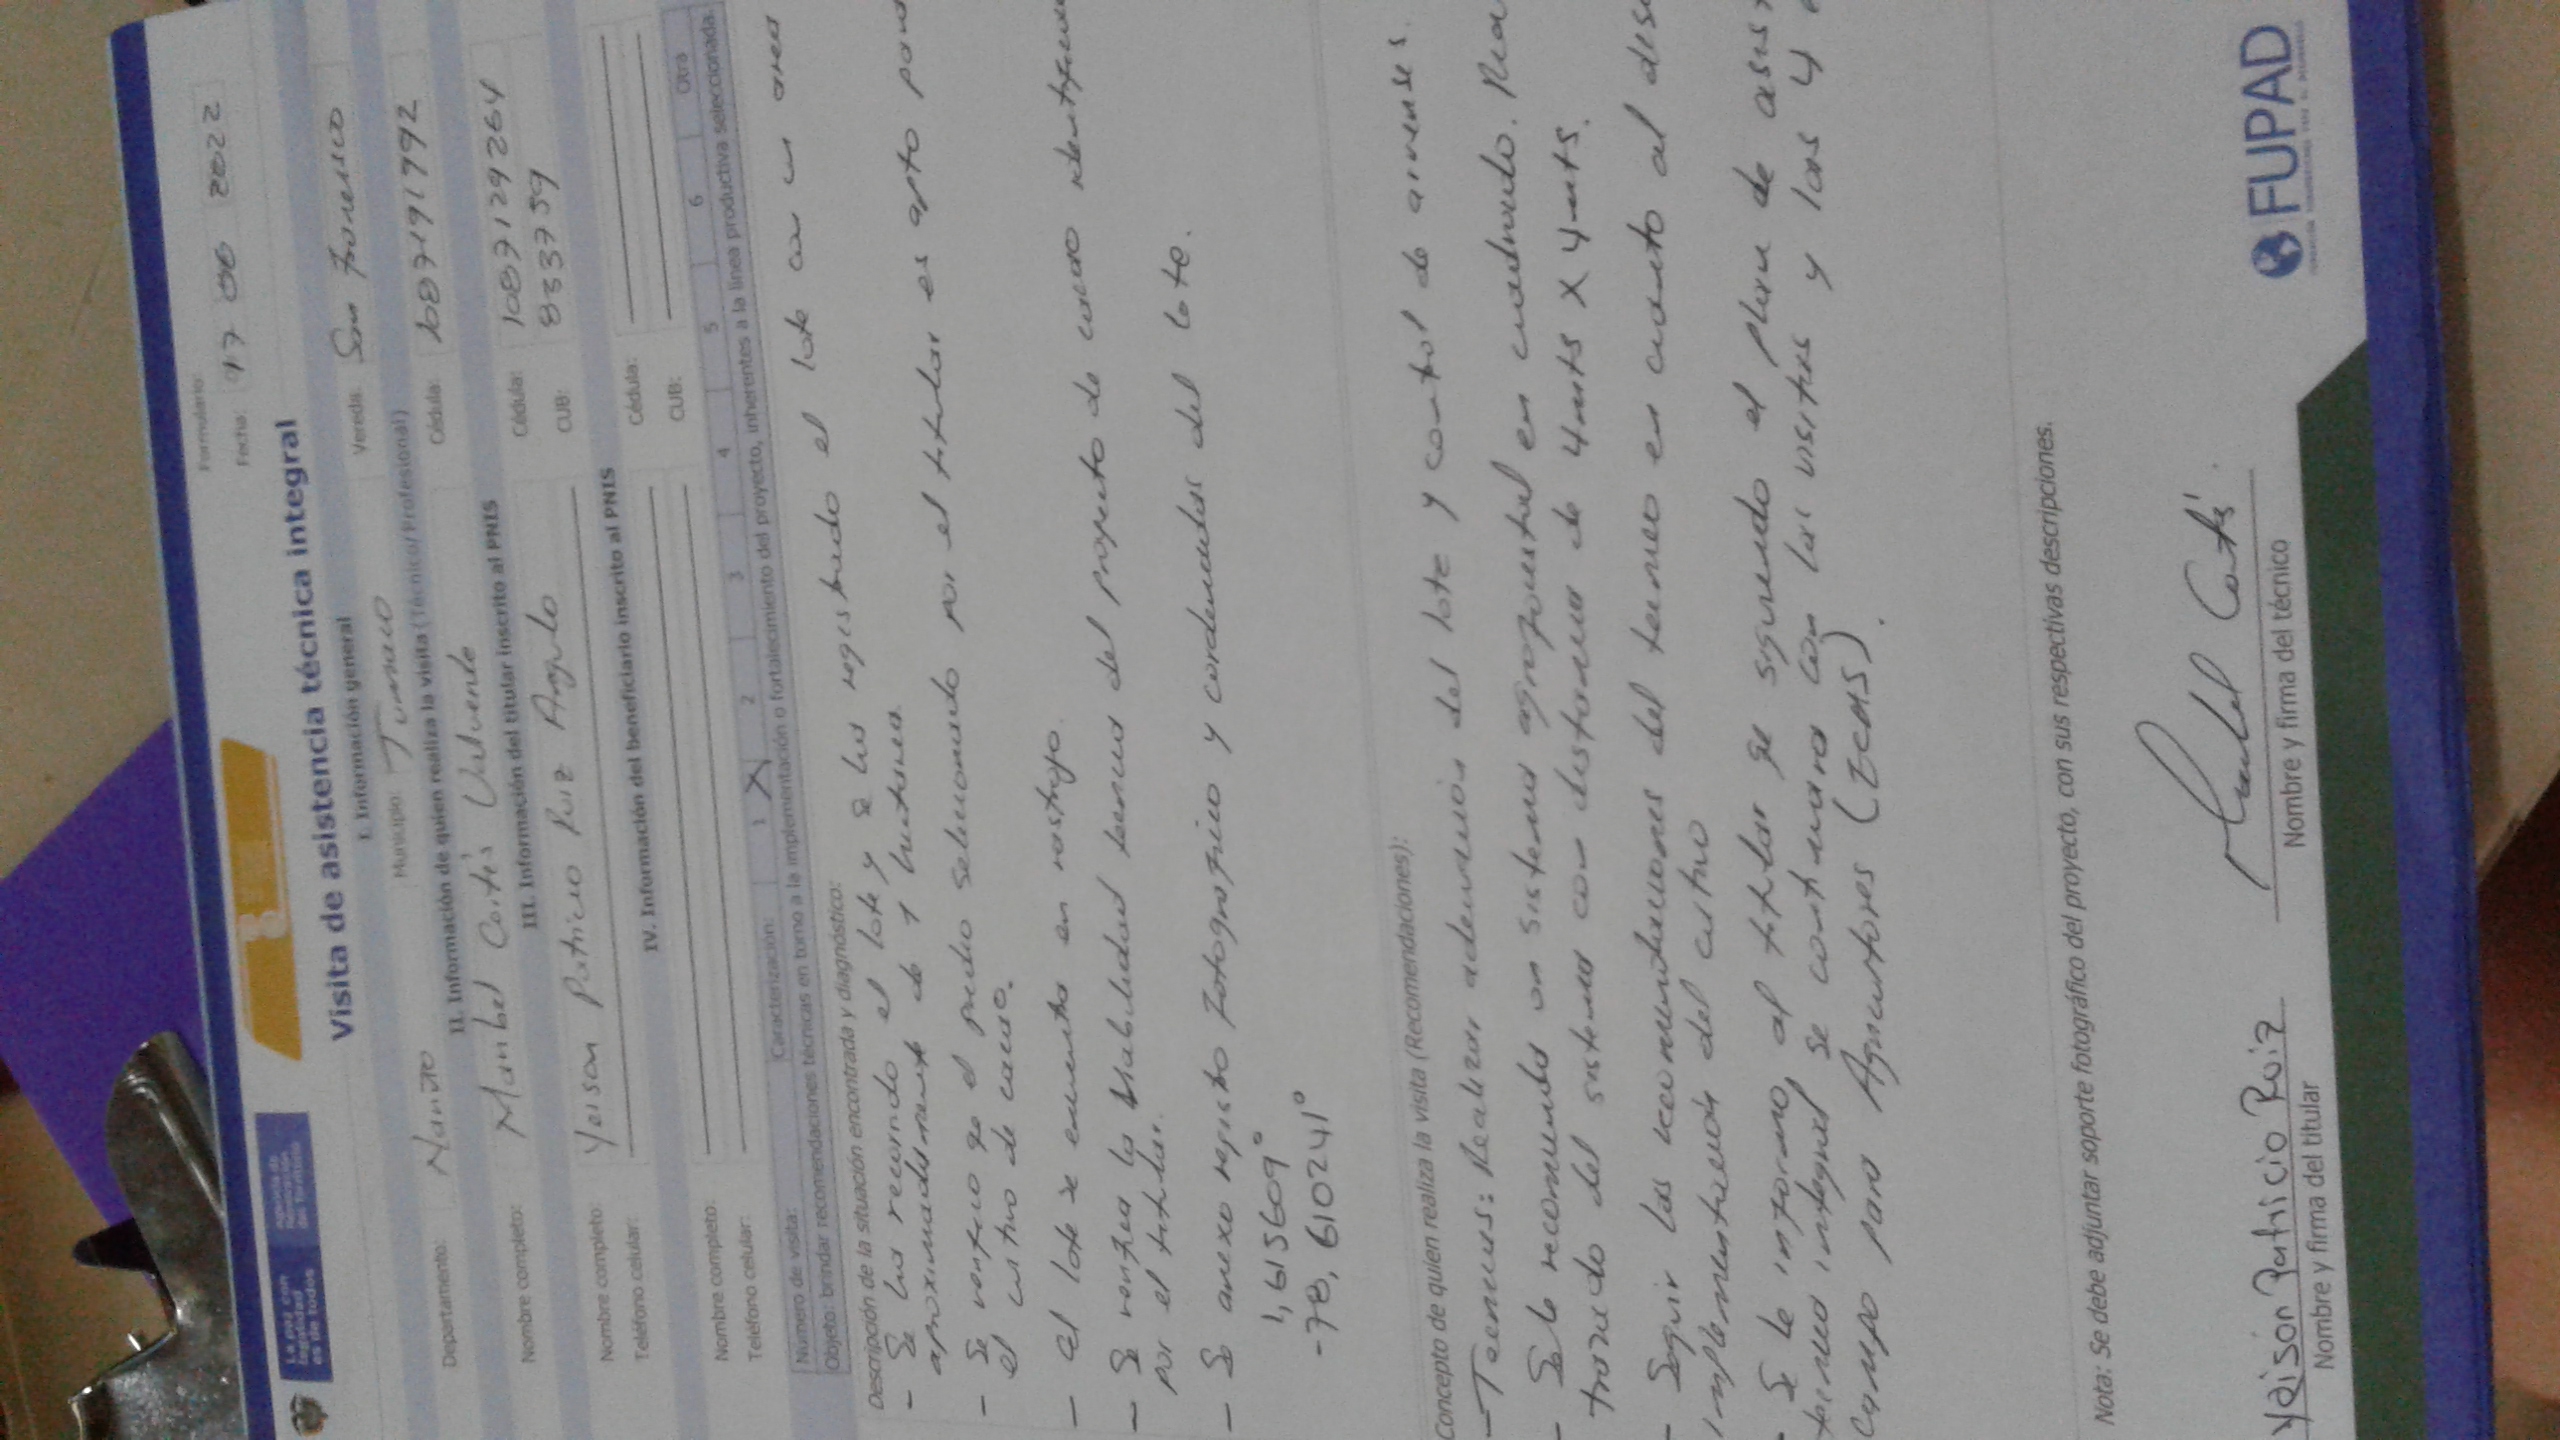 La paz con legalidad es de todos
Agencia de Renovación del Territorio
Formulario:
Fecha: 17 06 2022
Visita de asistencia técnica integral
I. Información general
Departamento: Nariño Municipio: Tumaco Vereda: San Francisco
II. Información de quien realiza la visita (Técnico/Profesional)
Nombre completo: Manbel Cortés Valverde Cédula:
III. Información del titular inscrito al PNIS
Nombre completo: Yeison Patricio Ruiz Angulo Cédula: 1087129264
Teléfono celular: CUB: 8333759
IV. Información del beneficiario inscrito al PNIS
Nombre completo: Cédula:
Teléfono celular: CUB:
Número de visita: Caracterización: 1 X 2 3 4 5 6 Otra
Objeto: brindar recomendaciones técnicas en torno a la implementación o fortalecimiento del proyecto, inherentes a la línea productiva seleccionada.
Descripción de la situación encontrada y diagnóstico:
- Se ha recorrido el lote y se ha registrado el lote con un area
aproximadamente de 1 hectarea
- Se verifico qe el predio seleccionado por el titular es apto para
el cultivo de cacao.
- el lote se encuentra en rastrojo.
- Se verifica la viabilidad tecnica del proyecto de cacao
por el titular.
- Se anexo registro fotografico y cordenadas del lote.
1,615609°
-78,610241°
Concepto de quien realiza la visita (Recomendaciones):
- Tecnicas: Realizar adecuación del lote y control de arvenses.
- Se le recomienda un sistema agroforestal en cuadrado.
trazado del sistema con distancia de 4mts X 4mts.
- Seguir las recomendaciones del tecnico en cuanto al
implementación del cultivo
- Se le informo al titular qe siguiendo el plan de
tecnica integral se continuara con las visitas y las 4
Campo para Agricultores (ECAS).
Nota: Se debe adjuntar soporte fotográfico del proyecto, con sus respectivas descripciones.
Yeison Patricio Roiz
Nombre y firma del titular
Manbel Cortés.
Nombre y firma del técnico
FUPAD